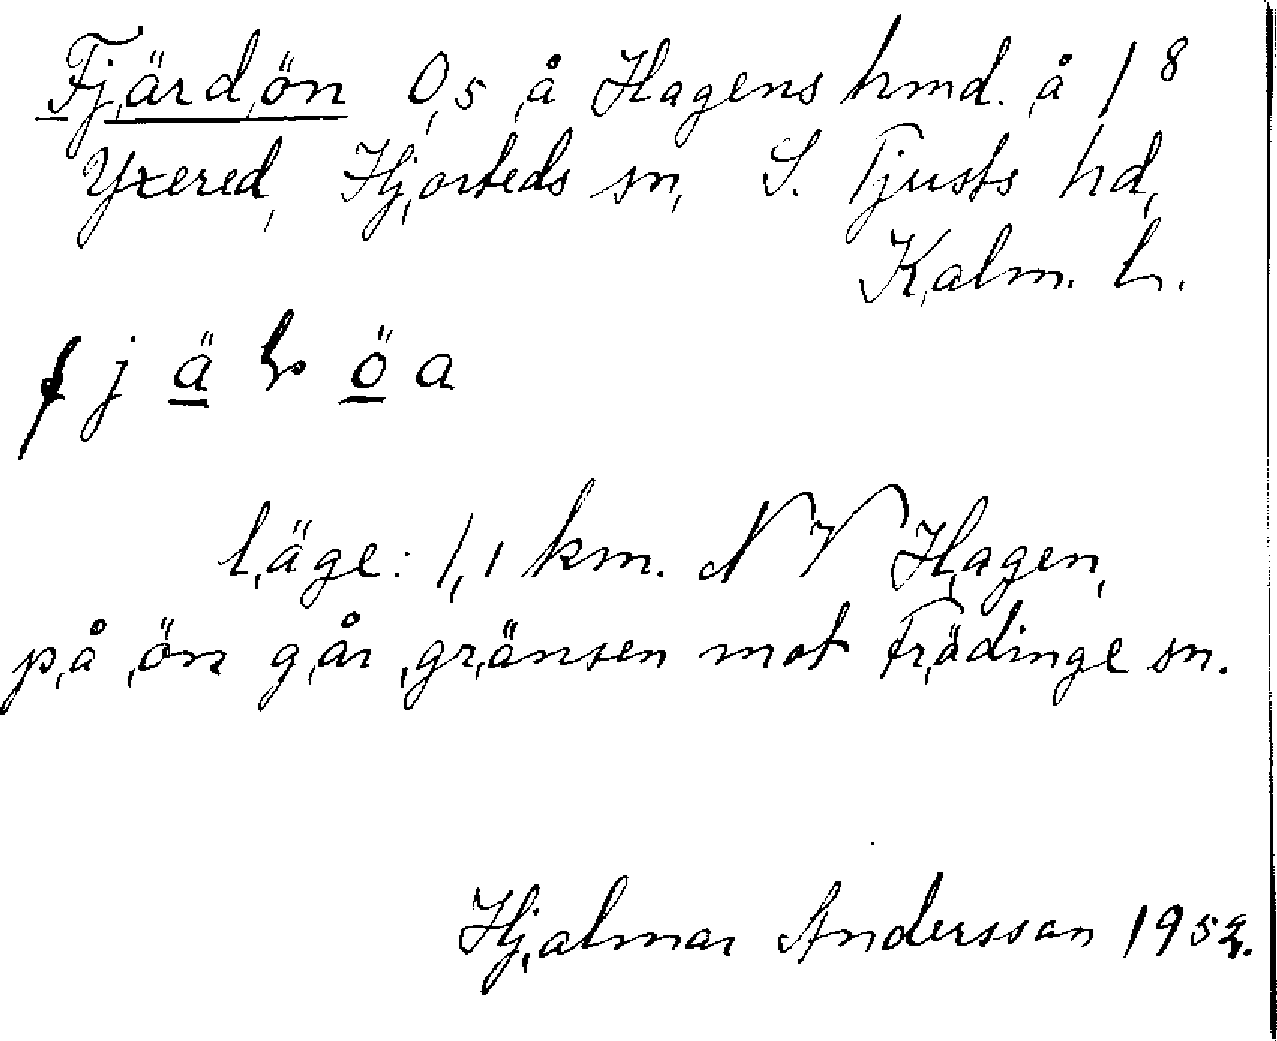 Fjärdön 0,5 å Hagens hmd. å 1 8
Yxered, Hjorteds sn, S. Tjusts hd,
Kalm. L.
f j ä öa
läge: 1,1 km. NV Hagen,
på ön går gränsen mot Frödinge sn.
Hjalmar Andersson 1952.